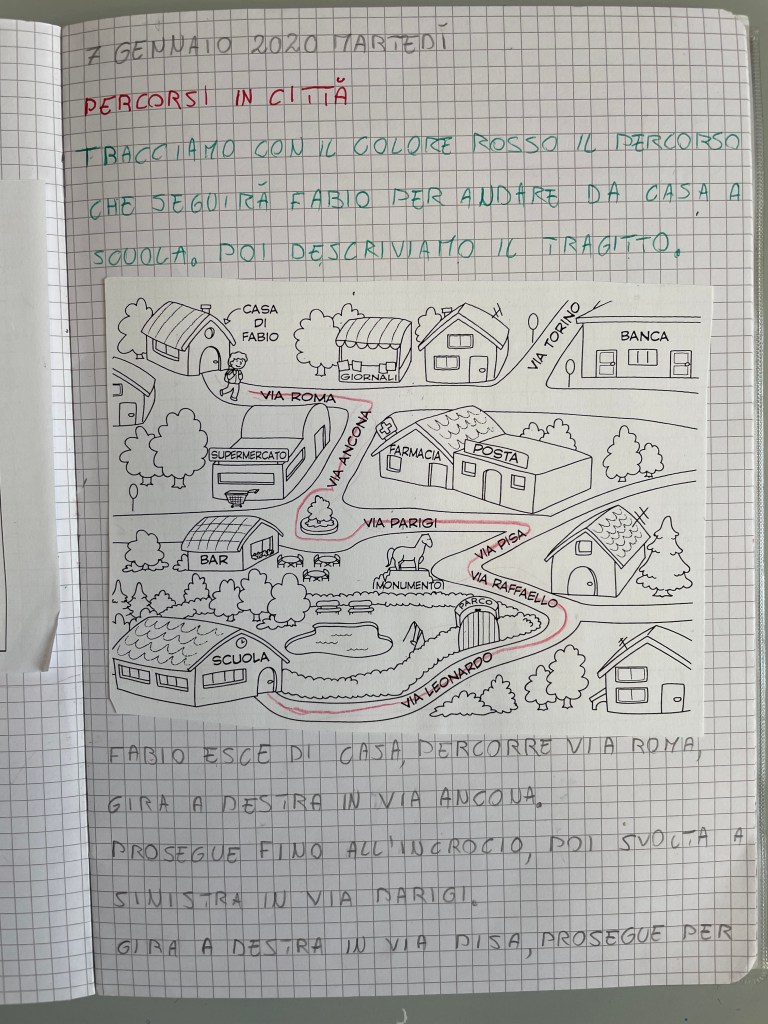 7 GENNAIO 2020 MARTEDÌ
PERCORSI IN CITTÀ
TRACCIAMO CON IL COLORE ROSSO IL PERCORSO
CHE SEGUIRÀ FABIO PER ANDARE DA CASA A
SCUOLA. POI DESCRIVIAMO IL TRAGITTO.
CASA
DI
FABIO
GIORNALI
VIA TORINO
BANCA
VIA ROMA
VIA ANCONA
SUPERMERCATO
FARMACIA
POSTA
VIA PARIGI
BAR
VIA PISA
MONUMENTO
VIA RAFFAELLO
PARCO
SCUOLA
VIA LEONARDO
FABIO ESCE DI CASA, PERCORRE VIA ROMA,
GIRA A DESTRA IN VIA ANCONA.
PROSEGUE FINO ALL'INCROCIO, POI SVOLTA A
SINISTRA IN VIA PARIGI.
GIRA A DESTRA IN VIA PISA, PROSEGUE PER